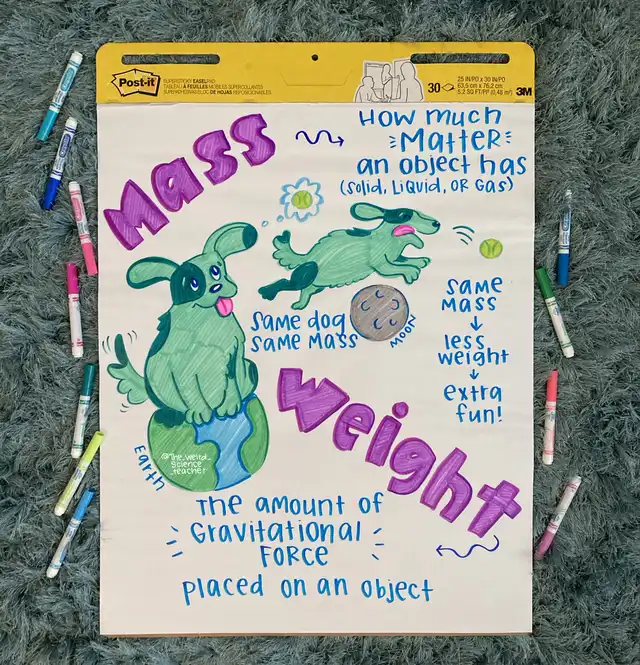 Post-it
SUPERSTICKY EASEL PAD
TABLEAU À FEUILLES MOBILES SUPERCOLLANTES
SUPERREFRIABLOC DE HOJAS REPOSICIONABLES
30
25 IN/PO x 30 IN/PO
63,5 cm x 76,2 cm
5.2 SQ FT/PP (0,48 m²)
3M
Mass
How much
Matter
an object has
(solid, liquid, or gas)
same dog
same mass
moon
same
mass
less
weight
extra
fun!
Weight
Earth
@The_weird_
science
_teacher
The amount of
Gravitational
Force
placed on an object